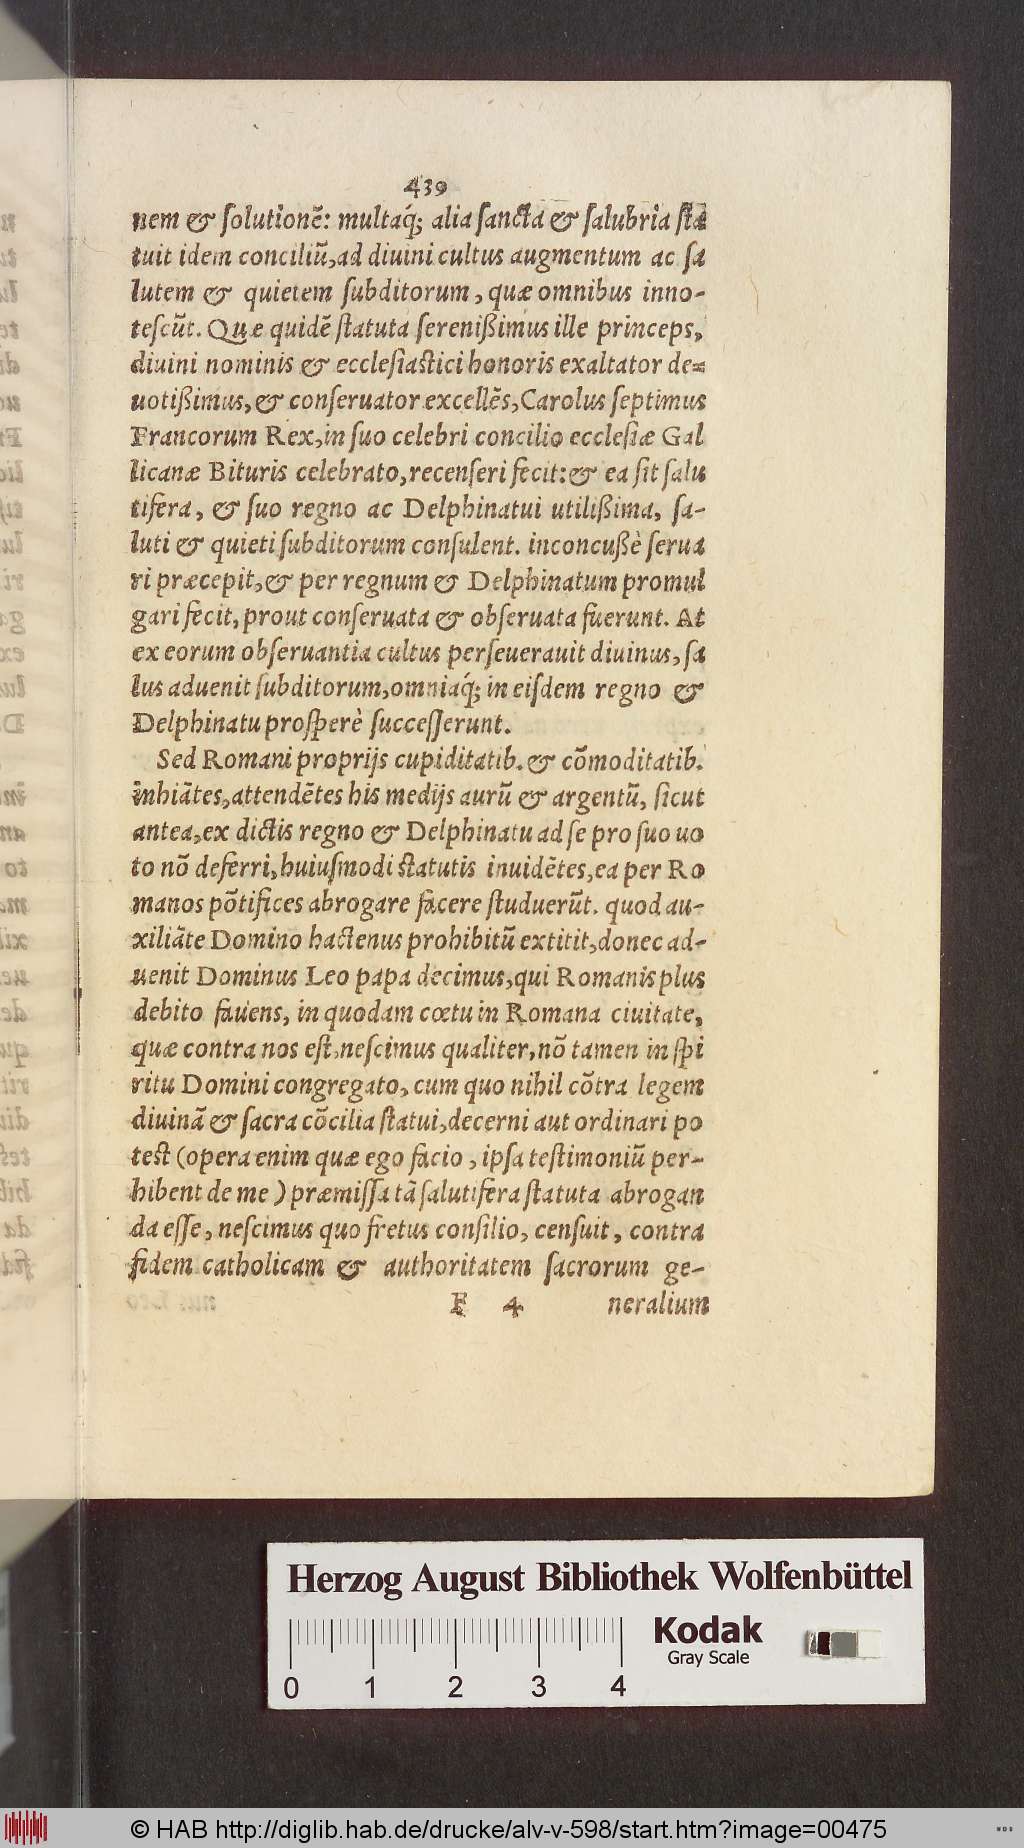 439
nem & ſolutionē: multaq́; alia ſancta & ſalubria ſta
tuit idem conciliū, ad diuini cultus augmentum ac ſa
lutem & quietem ſubditorum, quæ omnibus inno-
teſcūt. Quæ quidē ſtatuta ſereniſsimus ille princeps,
diuini nominis & eccleſiaſtici honoris exaltator de-
uotiſsimus, & conſeruator excellēs, Carolus ſeptimus
Francorum Rex, in ſuo celebri concilio eccleſiæ Gal
licanæ Bituris celebrato, recenſeri fecit: & ea ſit ſalu
tifera, & ſuo regno ac Delphinatui utiliſsima, ſa-
luti & quieti ſubditorum conſulent. inconcuſsè ſerua
ri præcepit, & per regnum & Delphinatum promul
gari fecit, prout conſeruata & obſeruata fuerunt. At
ex eorum obſeruantia cultus perſeuerauit diuinus, ſa
lus aduenit ſubditorum, omniaq́; in eiſdem regno &
Delphinatu proſperè ſucceſſerunt.
Sed Romani proprijs cupiditatib. & cōmoditatib.
inhiātes, attendētes his medijs aurū & argentū, ſicut
antea, ex dictis regno & Delphinatu ad ſe pro ſuo uo
to nō deferri, huiuſmodi ſtatutis inuidētes, ea per Ro
manos pōtifices abrogare facere ſtuduerūt. quod au-
xiliāte Domino hactenus prohibitū extitit, donec ad-
uenit Dominus Leo papa decimus, qui Romanis plus
debito fauens, in quodam cœtu in Romana ciuitate,
quæ contra nos eſt, neſcimus qualiter, nō tamen in ſpi
ritu Domini congregato, cum quo nihil cōtra legem
diuinā & ſacra cōcilia ſtatui, decerni aut ordinari po
teſt (opera enim quæ ego facio, ipſa teſtimoniū per-
hibent de me) præmiſſa tā ſalutifera ſtatuta abrogan
da eſſe, neſcimus quo fretus conſilio, cenſuit, contra
fidem catholicam & authoritatem ſacrorum ge-
F 4 neralium
Herzog August Bibliothek Wolfenbüttel
Kodak
Gray Scale
0 1 2 3 4
© HAB http://diglib.hab.de/drucke/alv-v-598/start.htm?image=00475